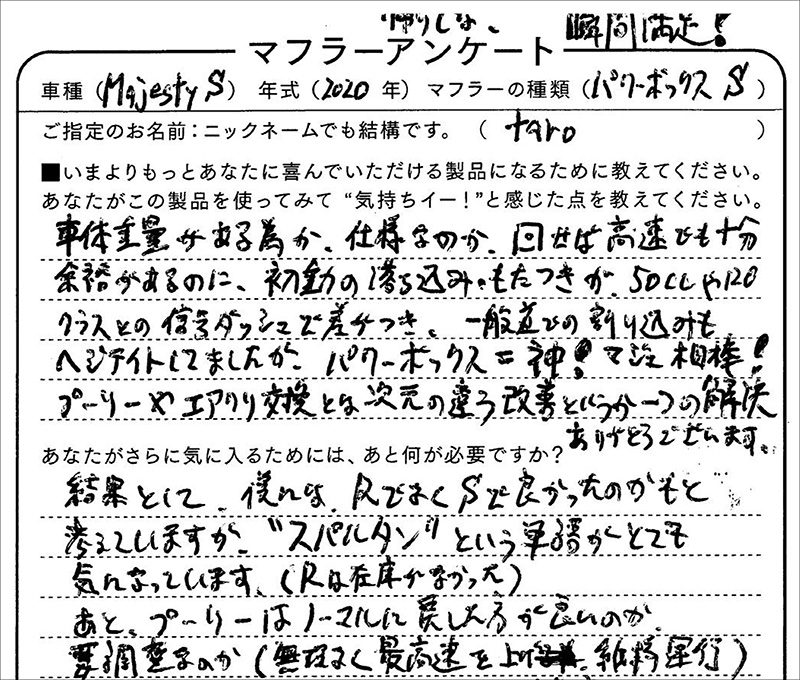 瞬間満足!
マフラーアンケート
車種(Majesty S) 年式(2020 年) マフラーの種類(パワーボックス S )
ご指定のお名前:ニックネームでも結構です。( taro )
■いまよりもっとあなたに喜んでいただける製品になるために教えてください。
あなたがこの製品を使ってみて “気持ちイー!”と感じた点を教えてください。
車体重量がある為か、仕様なのか、回せば高速でも十分
余裕があるのに、初動の落ち込み・もたつきが、50ccや120
クラスとの信号ダッシュで差がつき、一般道での割り込みも
ヘジテイトしてましたが、パワーボックス=神!マジ相棒!
プーリーやエアクリ交換とは次元の違う改善というか一つの解決
ありがとうございます。
あなたがさらに気に入るためには、あと何が必要ですか?
結果として、僕には、RでなくSで良かったのかもと
考えていますが、“スパルタン”という単語がとても
気になっています。(Rは在庫がなかった)
あと、プーリーはノーマルに戻した方が良いのか、
要調整なのか(無理なく最高速を上げ 維持運行)